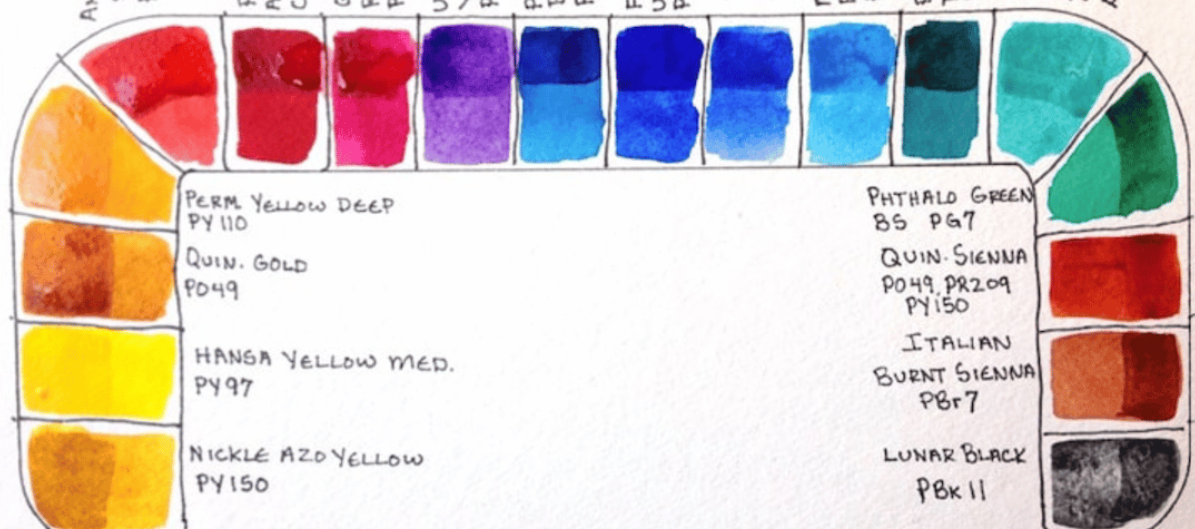 PERM YELLOW DEEP
PY 110
QUIN. GOLD
PO49
HANSA YELLOW MED.
PY97
NICKLE AZO YELLOW
PY150
PHTHALO GREEN
BS PG7
QUIN. SIENNA
PO49, PR209
PY150
ITALIAN
BURNT SIENNA
PBr7
LUNAR BLACK
PBk 11